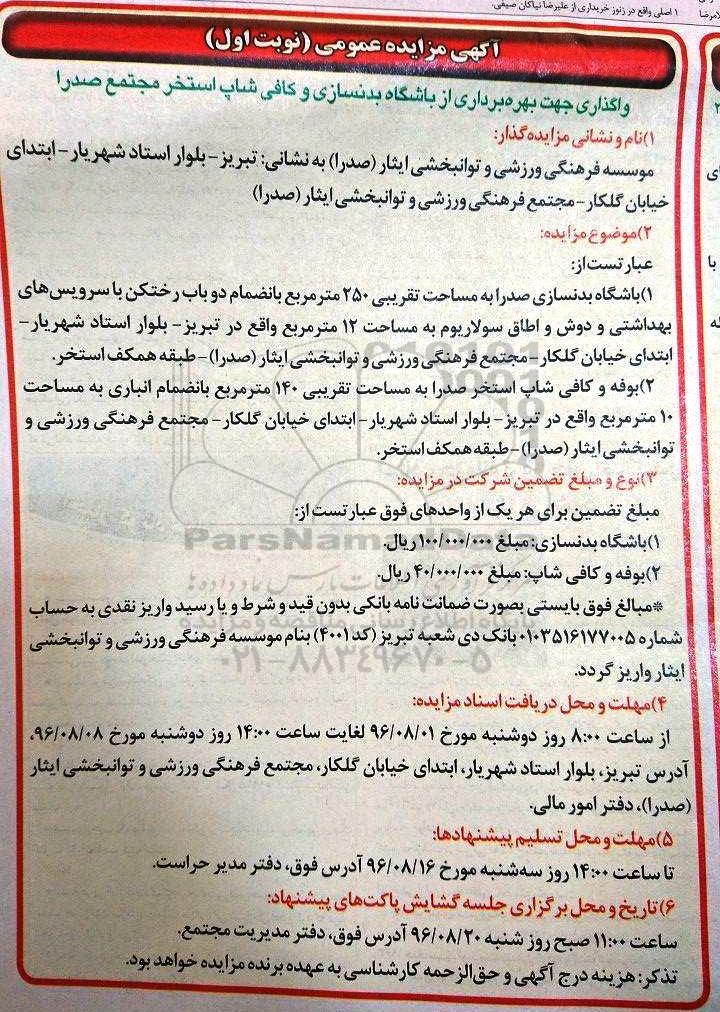 ۱ اصلی واقع در زنوز خریداری از علیرضا نیاکان صیفی.
آگهی مزایده عمومی (نوبت اول)
واگذاری جهت بهره‌برداری از باشگاه بدنسازی و کافی شاپ استخر مجتمع صدرا
۱)نام و نشانی مزایده‌گذار:
موسسه فرهنگی ورزشی و توانبخشی ایثار (صدرا) به نشانی: تبریز- بلوار استاد شهریار- ابتدای
خیابان گلکار- مجتمع فرهنگی ورزشی و توانبخشی ایثار (صدرا)
۲)موضوع مزایده:
عبارتست از:
۱)باشگاه بدنسازی صدرا به مساحت تقریبی ۲۵۰ مترمربع بانضمام دو باب رختکن با سرویس‌های
بهداشتی و دوش و اطاق سولاریوم به مساحت ۱۲ مترمربع واقع در تبریز- بلوار استاد شهریار-
ابتدای خیابان گلکار- مجتمع فرهنگی ورزشی و توانبخشی ایثار (صدرا)- طبقه همکف استخر.
۲)بوفه و کافی شاپ استخر صدرا به مساحت تقریبی ۱۴۰ مترمربع بانضمام انباری به مساحت
۱۰ مترمربع واقع در تبریز- بلوار استاد شهریار- ابتدای خیابان گلکار- مجتمع فرهنگی ورزشی و
توانبخشی ایثار (صدرا)- طبقه همکف استخر.
۳)نوع و مبلغ تضمین شرکت در مزایده:
مبلغ تضمین برای هر یک از واحدهای فوق عبارتست از:
۱)باشگاه بدنسازی: مبلغ ۱۰۰/۰۰۰/۰۰۰ ریال.
ParsNamadData
۲)بوفه و کافی شاپ: مبلغ ۴۰/۰۰۰/۰۰۰ ریال.
*مبالغ فوق بایستی بصورت ضمانت نامه بانکی بدون قید و شرط و یا رسید واریز نقدی به حساب
شماره ۰۱۰۳۵۱۶۱۷۷۰۰۵ بانک دی شعبه تبریز (کد ۴۰۰۱) بنام موسسه فرهنگی ورزشی و توانبخشی
ایثار واریز گردد.
۰۲۱-۸۸۳۴۹۶۷۰-۵
۴)مهلت و محل دریافت اسناد مزایده:
از ساعت ۸:۰۰ روز دوشنبه مورخ ۹۶/۰۸/۰۱ لغایت ساعت ۱۴:۰۰ روز دوشنبه مورخ ۹۶/۰۸/۰۸،
آدرس تبریز، بلوار استاد شهریار، ابتدای خیابان گلکار، مجتمع فرهنگی ورزشی و توانبخشی ایثار
(صدرا)، دفتر امور مالی.
۵)مهلت و محل تسلیم پیشنهادها:
تا ساعت ۱۴:۰۰ روز سه‌شنبه مورخ ۹۶/۰۸/۱۶ آدرس فوق، دفتر مدیر حراست.
۶)تاریخ و محل برگزاری جلسه گشایش پاکت‌های پیشنهاد:
ساعت ۱۱:۰۰ صبح روز شنبه ۹۶/۰۸/۲۰ آدرس فوق، دفتر مدیریت مجتمع.
تذکر: هزینه درج آگهی و حق‌الزحمه کارشناسی به عهده برنده مزایده خواهد بود.